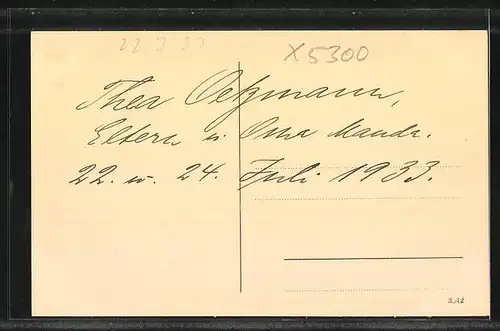 22 7 33
X5300
Thea Oetzmann,
Eltern u. Oma Mande.
22. u. 24. Juli 1933.
3.42